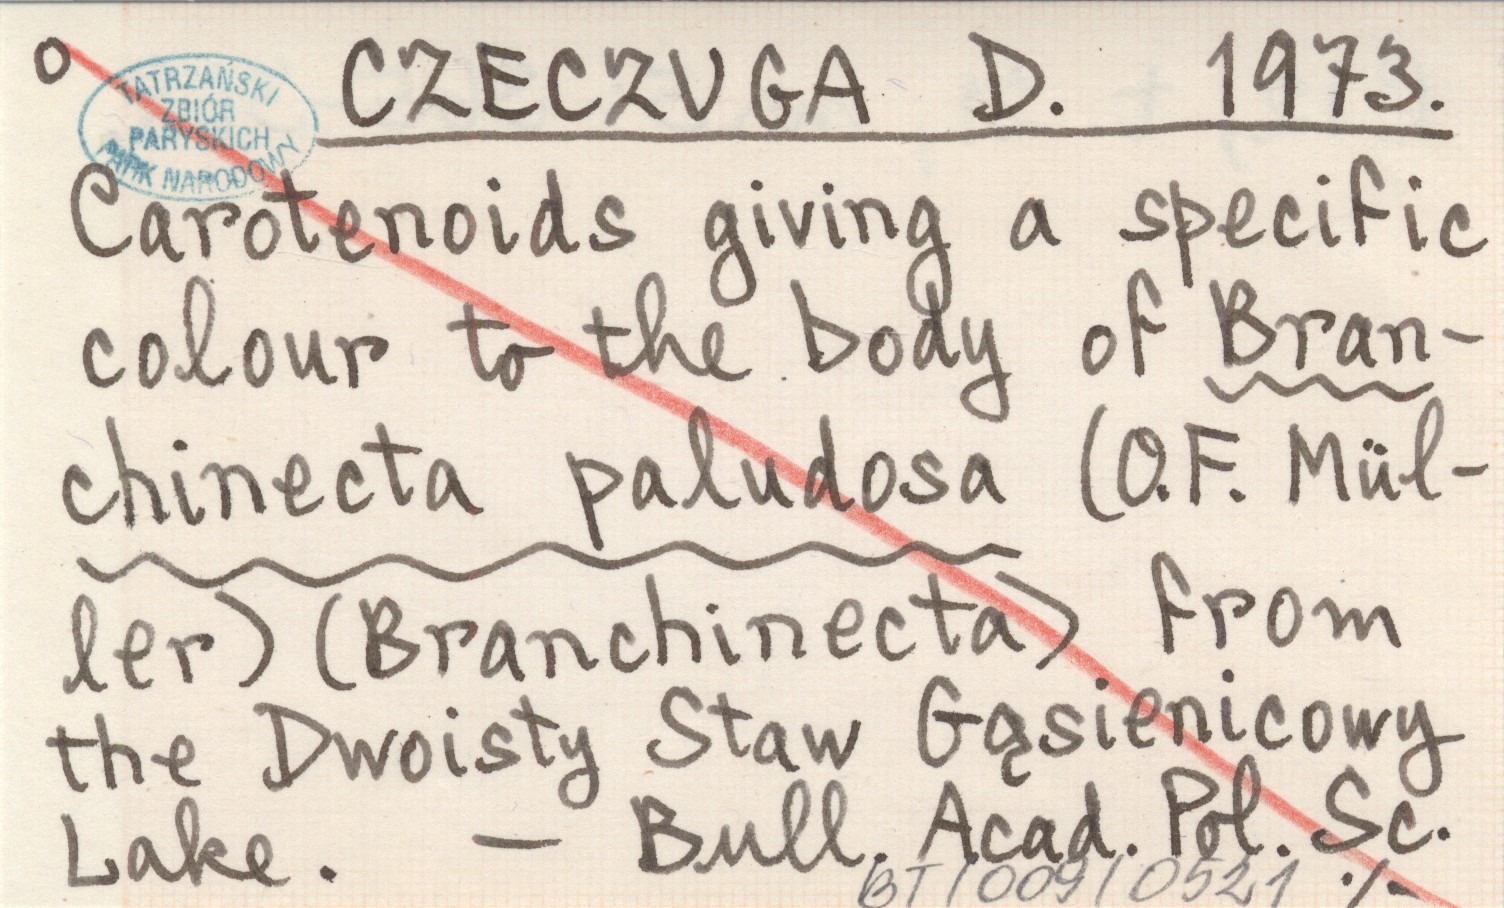 o
TATRZAŃSKI
ZBIÓR
PARYSKICH
PARK NARODOWY
CZECZUGA D. 1973.
Carotenoids giving a specific
colour to the body of Bran-
chinecta paludosa (O.F. Mül-
ler) (Branchinecta) from
the Dwoisty Staw Gąsienicowy
Lake. — Bull. Acad. Pol. Sc.
BT/009/0521 ./-